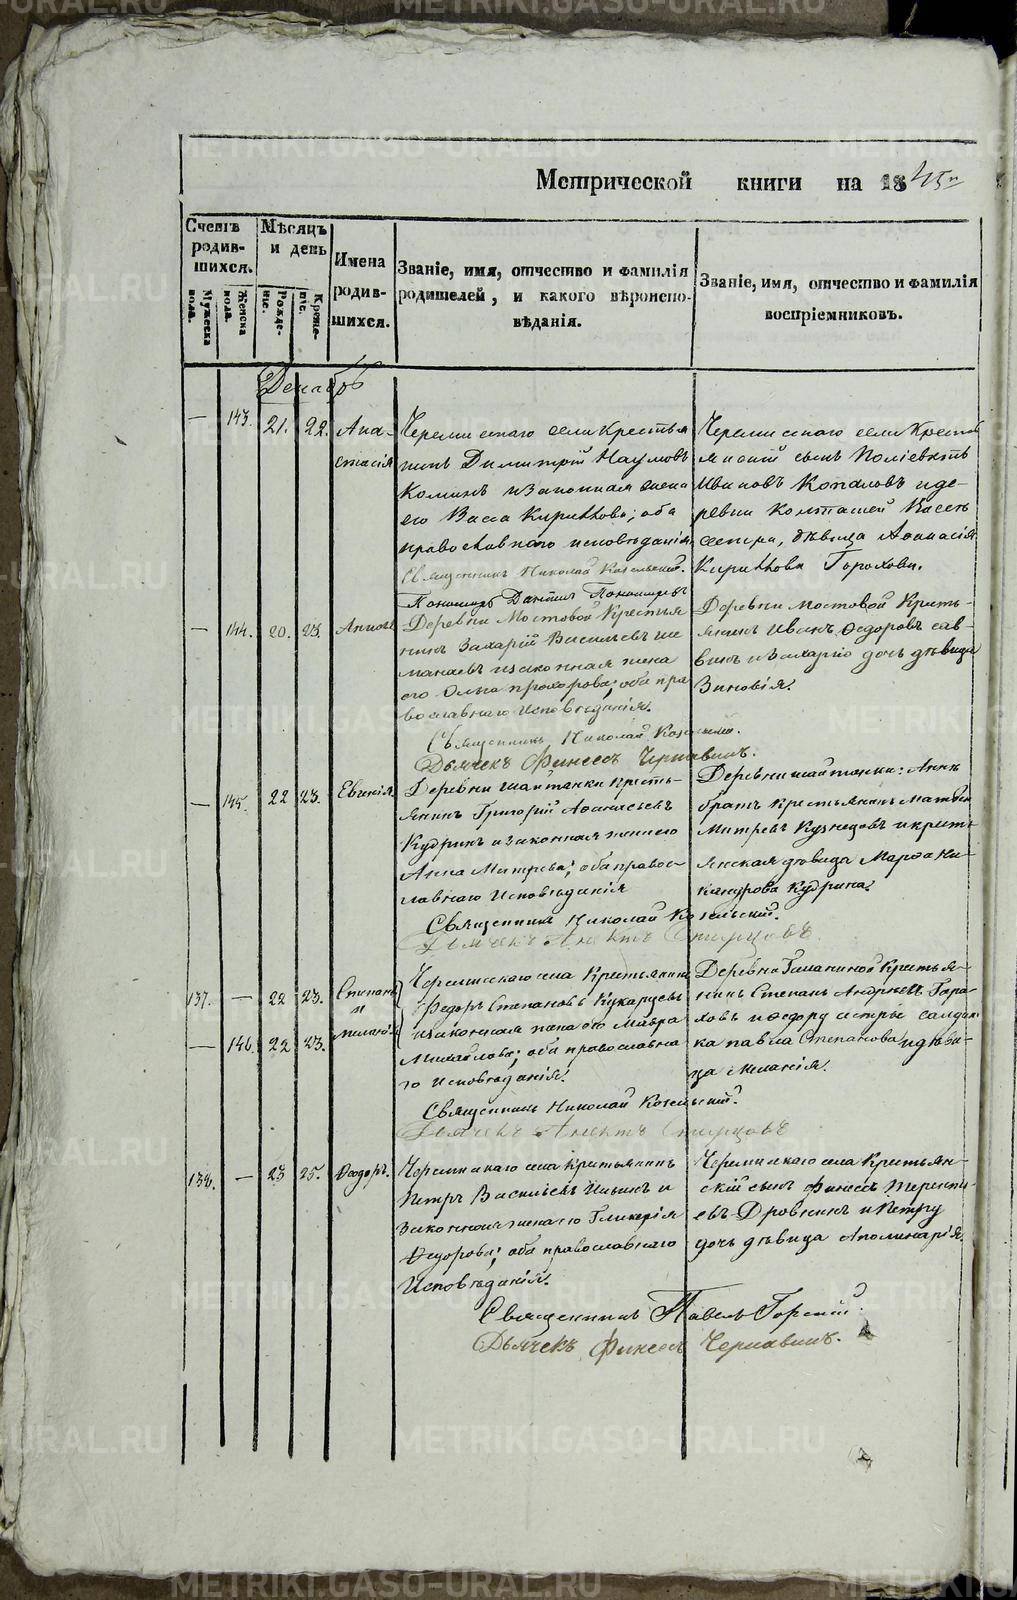 Метрической книги на 1845й
Счетъ родившихся.
Мѣсяцъ и день
Имена родившихся.
Званіе, имя, отчество и фамилія родителей, и какого вѣроисповѣданія.
Званіе, имя, отчество и фамилія воспріемниковъ.
Мужеска пола.
Женска пола.
Рожденіе.
Крещеніе.
Декабрь
— 143. 21. 22. Ана-
стасія
Черемисскаго села Крестья
нинъ Димитрій Наумовъ
Коминъ и Законная жена
его Васса Кириллова; оба
православнаго исповѣданія
Священникъ Николай Козельский.
Пономарь Пономаревъ
Черемисскаго села Кресть
янский сынъ Полiевктъ
Ивановъ Копаловъ и де-
ревни
сестра, дѣвица Афанасія
Кириллова Горохова.
— 144. 20. 23. Анна
Деревни Мостовой Крестья
нинъ Захарій Васильевъ
законная жена
его Ольга Прохорова; оба пра
вославнаго Исповѣданія.
Священникъ Николай Козельский.
Дьячекъ Финеесъ Чернавинъ.
Деревни Мостовой Кресть-
янинъ Иванъ Ѳедоровъ Сав-
винъ и Захарію дочь дѣвица
Зиновія.
— 145. 22 23. Евгенія
Деревни Шайтанки Кресть-
янинъ Григорій Афанасьевъ
Кудринъ и законная жена его
Анна Митрева; оба правос-
лавнаго Исповѣданія
Священникъ Николай Козельский.
Дьячекъ
Деревни Шайтанки: Аннѣ
братъ Крестьянинъ Матвей
Митревъ Кузнецовъ и кресть
янская дѣвица Марѳа Ни-
кандрова Кудрина.
137. — 22 23. Степанъ
и
— 146. 22 23. Меланія
Черемисскаго села Крестьянинъ
Федоръ Степановъ Кукарцевъ
и законная жена его Мавра
Михайлова; оба православна
го Исповѣданія.
Священникъ Николай Козельский.
Дьячекъ
Деревни Галаниной Крестья-
нинъ Степанъ Андреевъ Горо-
ховъ и Ѳедору сестры солдат
ка Павла Степанова и дѣви-
ца Меланія.
138. — 23 25. Ѳеодоръ.
Черемисскаго села Крестьянинъ
Петръ Васильевъ Ильинъ и
Законная жена его Гликерія
Ѳедорова; оба православнаго
Исповѣданія.
Священникъ Павелъ Горский.
Дьячекъ Финеесъ Чернавинъ.
Черемисскаго села Крестьян-
ский сынъ Финеесъ Теренть-
евъ Дровнинъ и Петру
дочь дѣвица Аполинарія.
METRIKI.GASO-URAL.RU